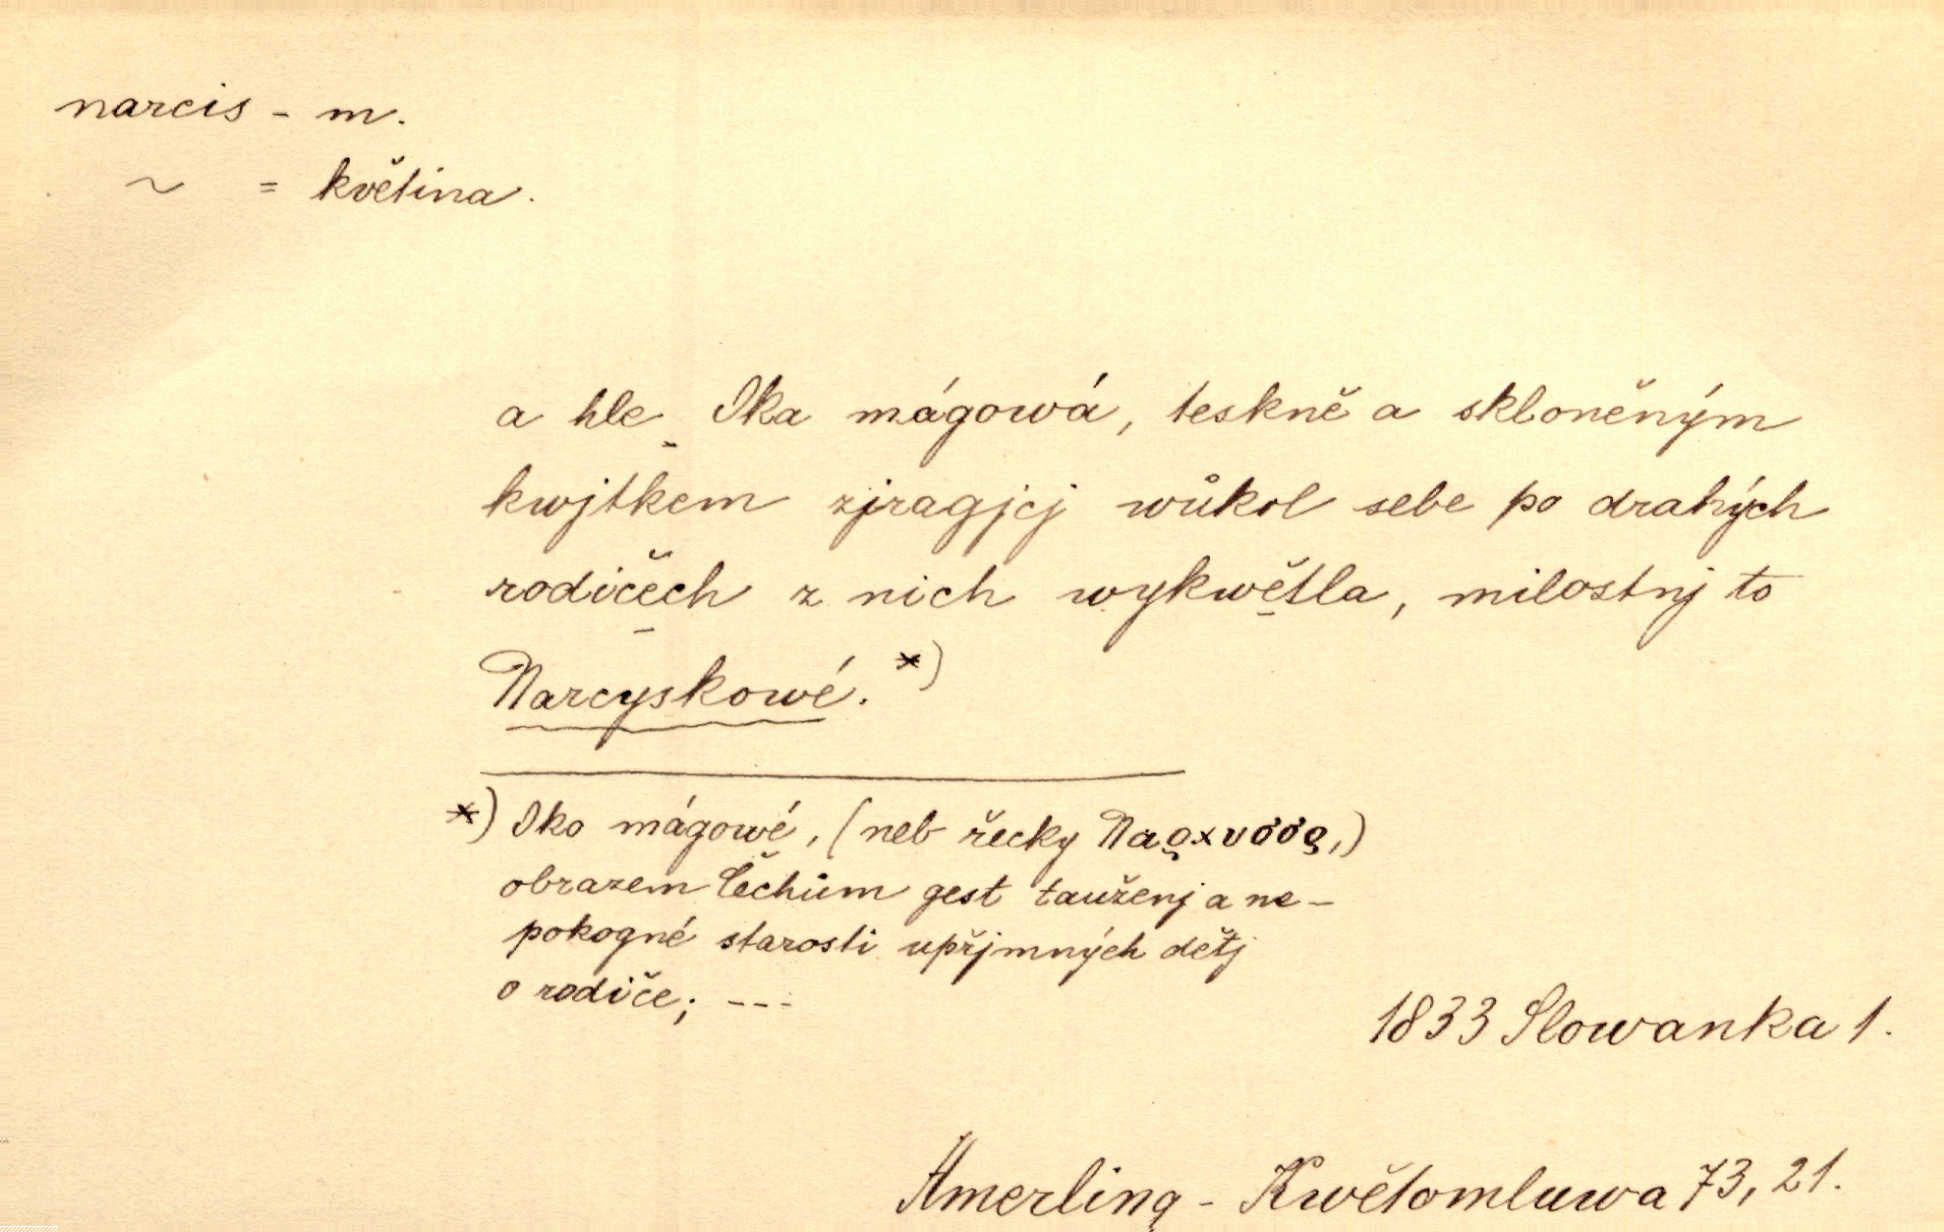 narcis - m.
~ = květina.
a hle Oka mágowá, teskně a skloněným
kwjtkem zjragjcj wůkol sebe po drahých
rodičech z nich wykwětla, milostnj to
Narcyskowé. *)
*) Oko mágowé, (neb řecky Ναϱxυσσϱ,)
obrazem Čechům gest tauženj a ne-
pokogné starosti upřjmných dětj
o rodiče; ---
1833 Slowanka 1.
Amerling - Kwětomluwa 73, 21.